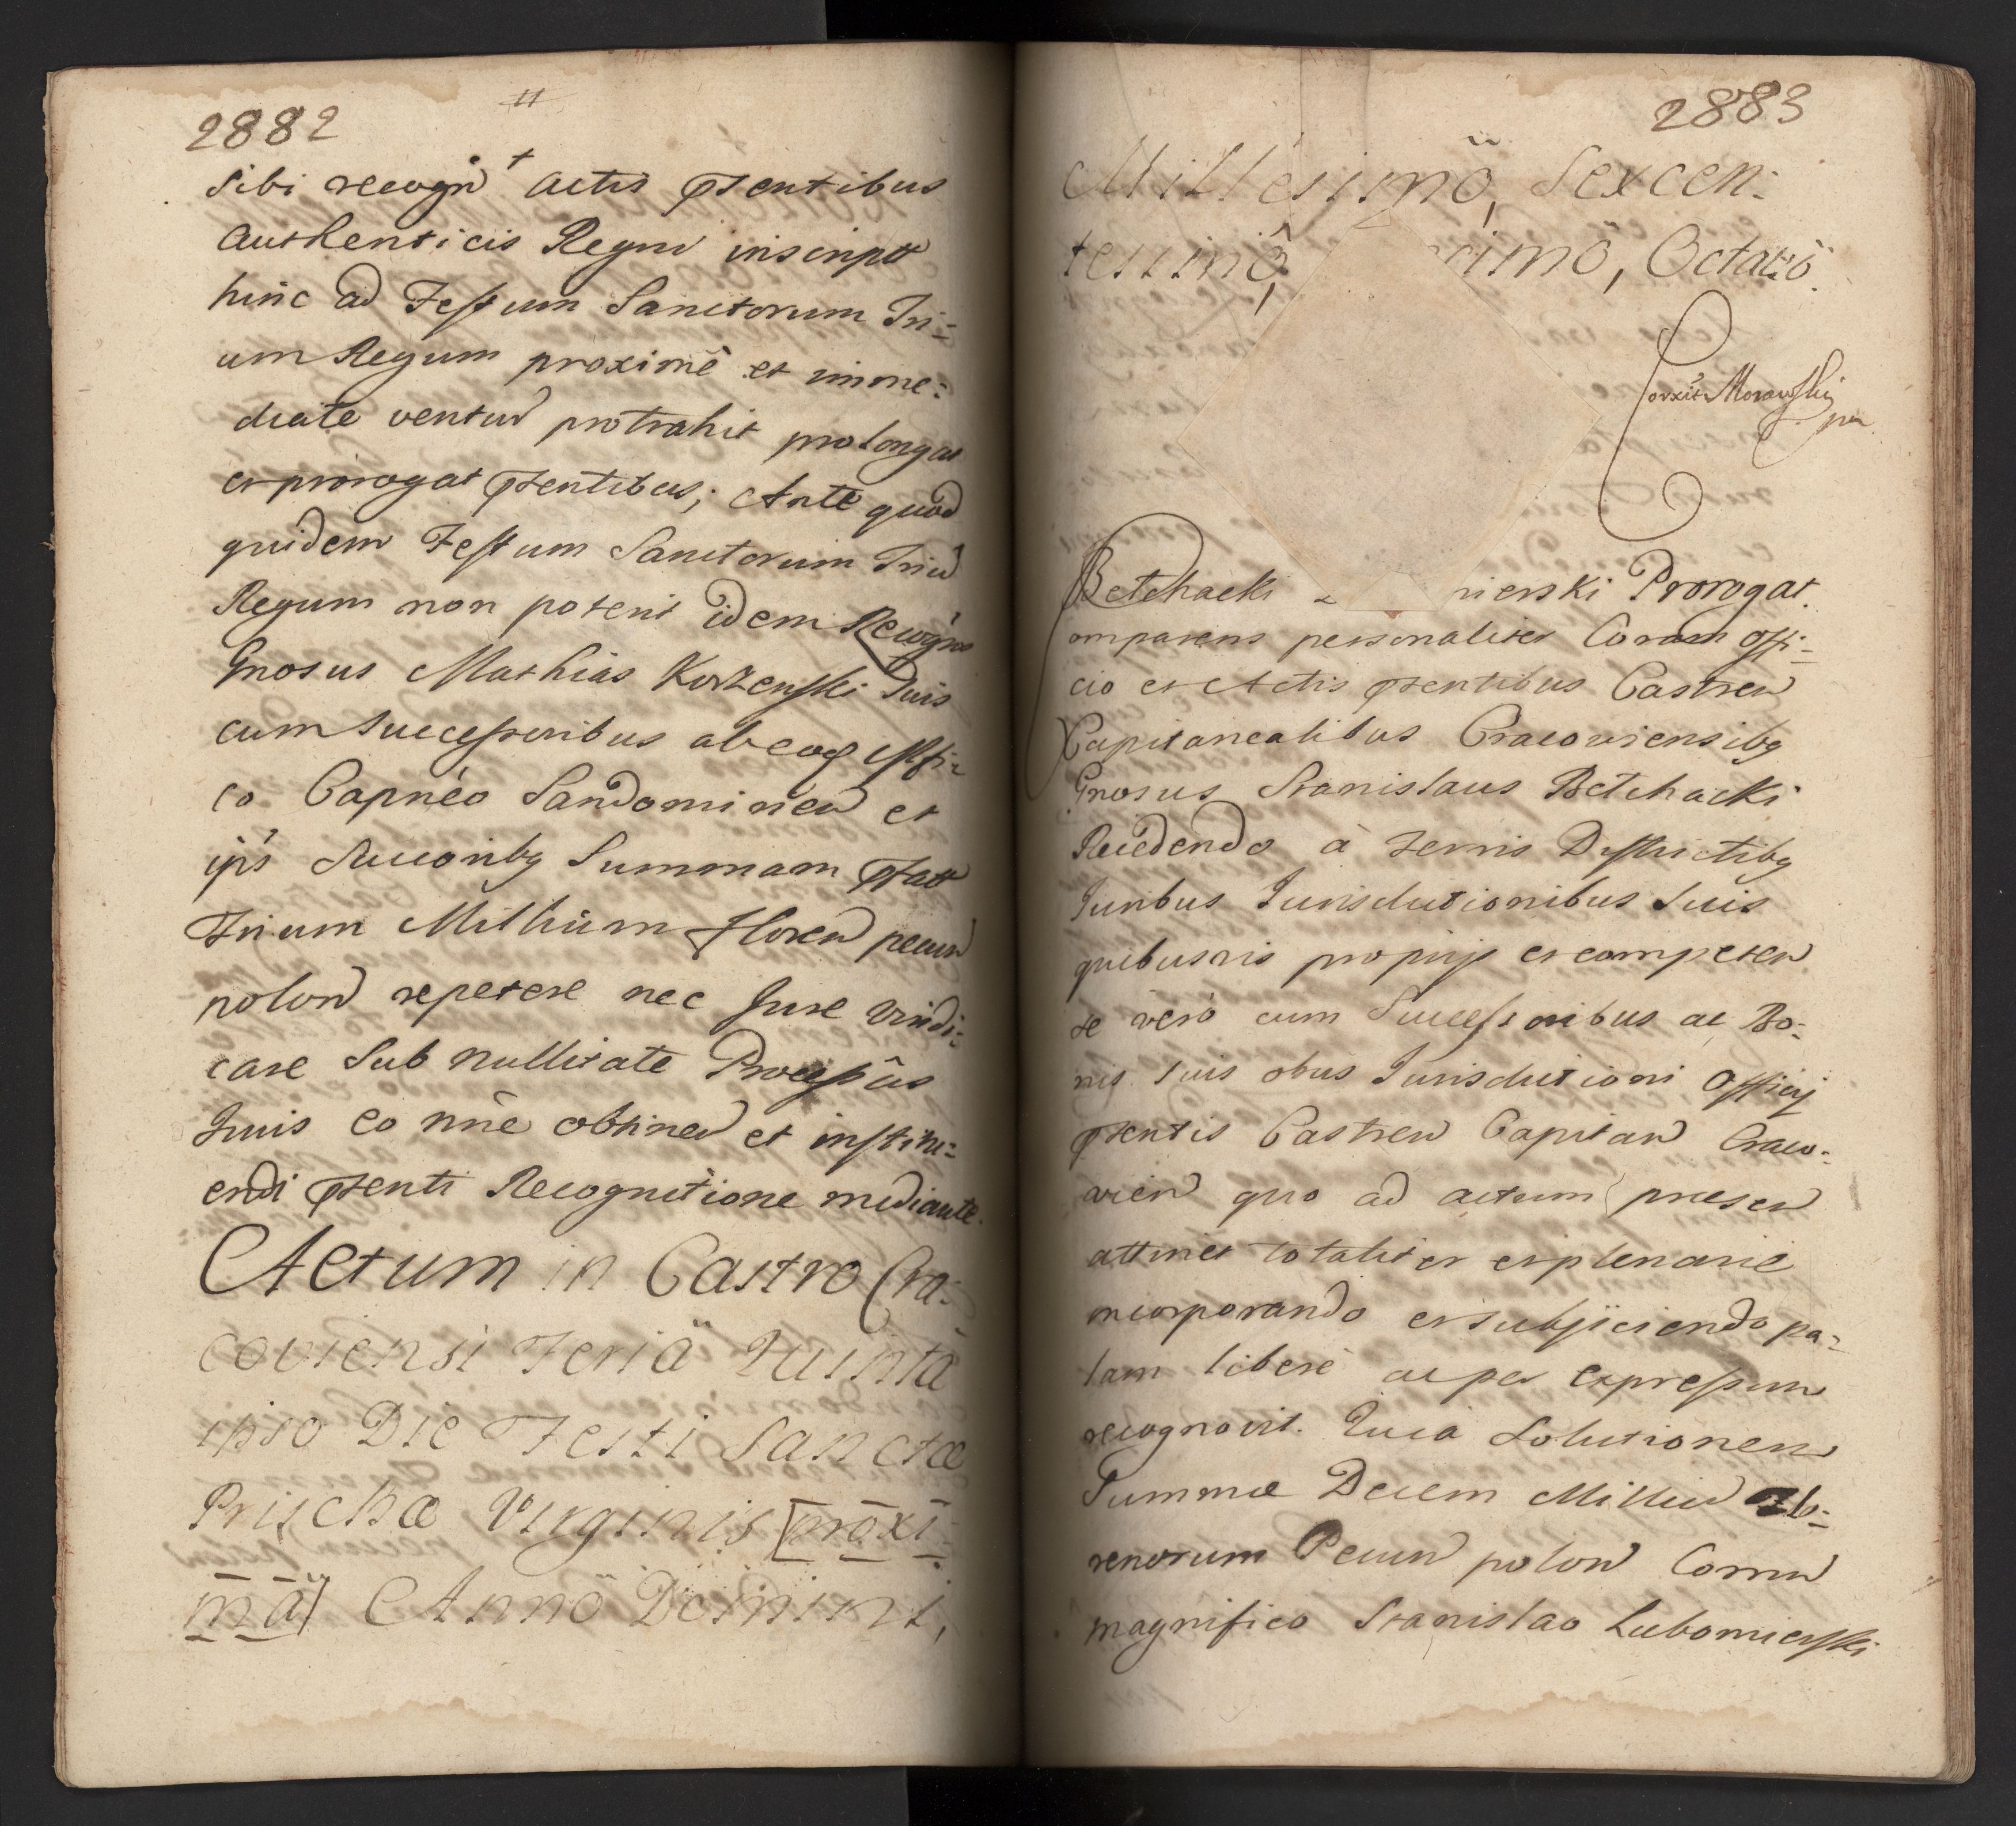 2882
sibi recogn + actis pꞃentibus
authenticis Regni inscript
hinc ad Festum Sanctorum Tri=
um Regum proximè et imme=
diate ventur protrahit prolongat
et prorogat pꞃentibus; Ante quod
quidem Festum Sanctorum Triu
Regum non poterit idem Recogns
Gnosus Mathias Korzenski Suis
cum Successoribus ab eog Offi=
co Capneo Sandomirien et
ips Succoribg Summam pꞃtatt
Trium Millium Floren pecun
polon repetere nec Jure vindi=
care Sub nullitate Processûs
Juris eo nñe obtinen et institu=
endi pꞃenti Recognitione mediante.
Actum in Castro Cra=
coviensi Feriâ Quintâ
ipso Die Festi Sanctæ
Prischæ Virginis [proxi
mâ] Annô Domini,
2883
Millesimô, Sexcen:
tesimô, cimô, Octavô.
Corxit Morawski
mp
Betchacki nierski Prorogat.
omparens personaliter Coram offi=
cio et Actis pꞃentibus Castren
Capitanealibus Cracoviensibg
Gnosus Stanislaus Betchacki
Recedendo à terris Districtibg
Juribus Jurisdictionibus Suis
quibusvis proprijs et competen
se verò cum Successoribus ac Bo=
nis suis obus Jurisdictioni Officij
pꞃentis Castren Capitan Craco=
vien quo ad actum praesen
attinet totaliter et plenarie
incorporando et subjiciendo pa=
lam liberè ac per expressum
recognovit. Quia Solutionem
Summæ Decem Milliu Flo=
renorum Pecun polon Corun
magnifico Stanislao Lubomierski